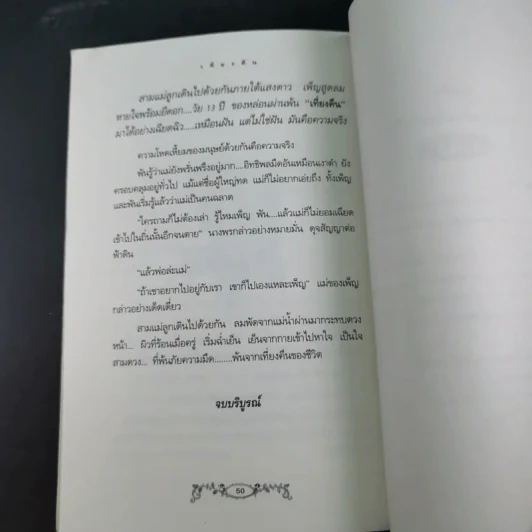 เ ที่ ย ง คื น
สามแม่ลูกเดินไปด้วยกันภายใต้แสงดาว เพ็ญสูดลม
หายใจพร้อมยืดอก....วัย 13 ปี ของหล่อนผ่านพ้น "เที่ยงคืน"
มาได้อย่างเฉียดฉิว.....เหมือนฝัน แต่ไม่ใช่ฝัน มันคือความจริง
ความโหดเหี้ยมของมนุษย์ด้วยกันคือความจริง
พันรู้ว่าแม่ยังพรั่นพรึงอยู่มาก....อิทธิพลมืดอันเหมือนเงาดำ ยัง
ครอบคลุมอยู่ทั่วไป แม้แต่ชื่อผู้ใหญ่ทด แม่ก็ไม่อยากเอ่ยถึง ทั้งเพ็ญ
และพันเริ่มรู้แล้วว่าแม่เป็นคนฉลาด
"ใครถามก็ไม่ต้องเล่า รู้ไหมเพ็ญ พัน....แล้วแม่ก็ไม่ยอมเฉียด
เข้าไปในถิ่นนั้นอีกจนตาย" นางพรกล่าวอย่างหมายมั่น ดุจสัญญาต่อ
ฟ้าดิน
"แล้วพ่อล่ะแม่"
"ถ้าเขาอยากไปอยู่กับเรา เขาก็ไปเองแหละเพ็ญ" แม่ของเพ็ญ
กล่าวอย่างเด็ดเดี่ยว
สามแม่ลูกเดินไปด้วยกัน ลมพัดจากแม่น้ำผ่านมากระทบดวง
หน้า... ผิวที่ร้อนเมื่อครู่ เริ่มฉ่ำเย็น เย็นจากกายเข้าไปหาใจ เป็นใจ
สามดวง... ที่พ้นภัยความมืด........พ้นจากเที่ยงคืนของชีวิต
จบบริบูรณ์
50